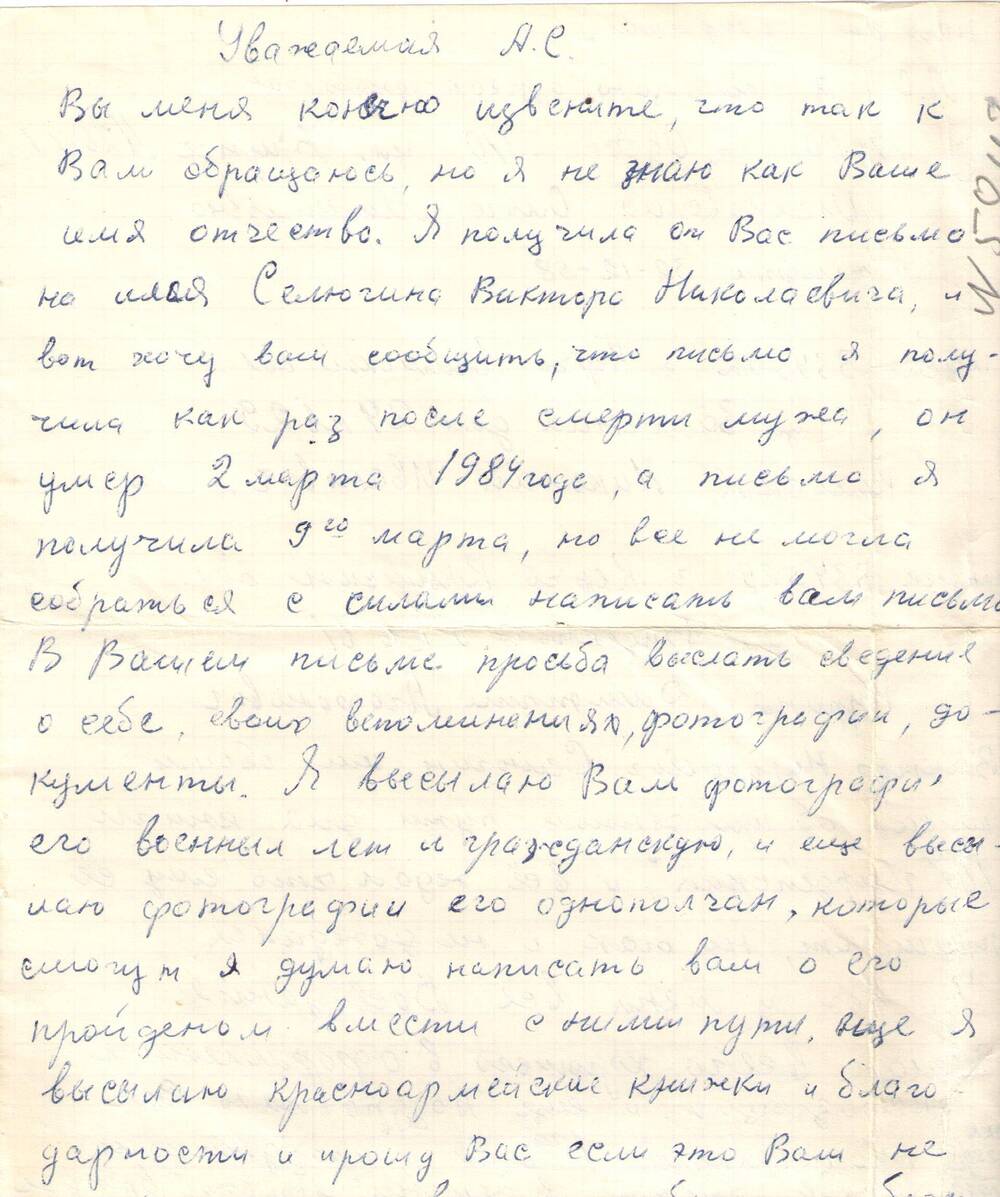 Уважаемая А.С.
Вы меня конечно извените, что так к
Вам обращаюсь, но я не знаю как Ваше
имя отчество. Я получила от Вас письмо
на имя Селючина Виктора Николаевича, и
вот хочу вам сообщить, что письмо я полу-
чила как раз после смерти мужа, он
умер 2 марта 1984 года, а письмо я
получила 9го марта, но все не могла
собраться с силами написать вам письмо
В Вашем письме просьба выслать сведения
о себе, своих вспоминениях, фотографии, до-
кументы. Я высылаю Вам фотографи
его военных лет и гражданскую, и еще высы-
лаю фотографии его однополчан, которые
смогут я думаю написать вам о его
пройденом вмести с ними пути, еще я
высылаю красноармейские книжки и благо-
дарности и прошу Вас если это Вам не